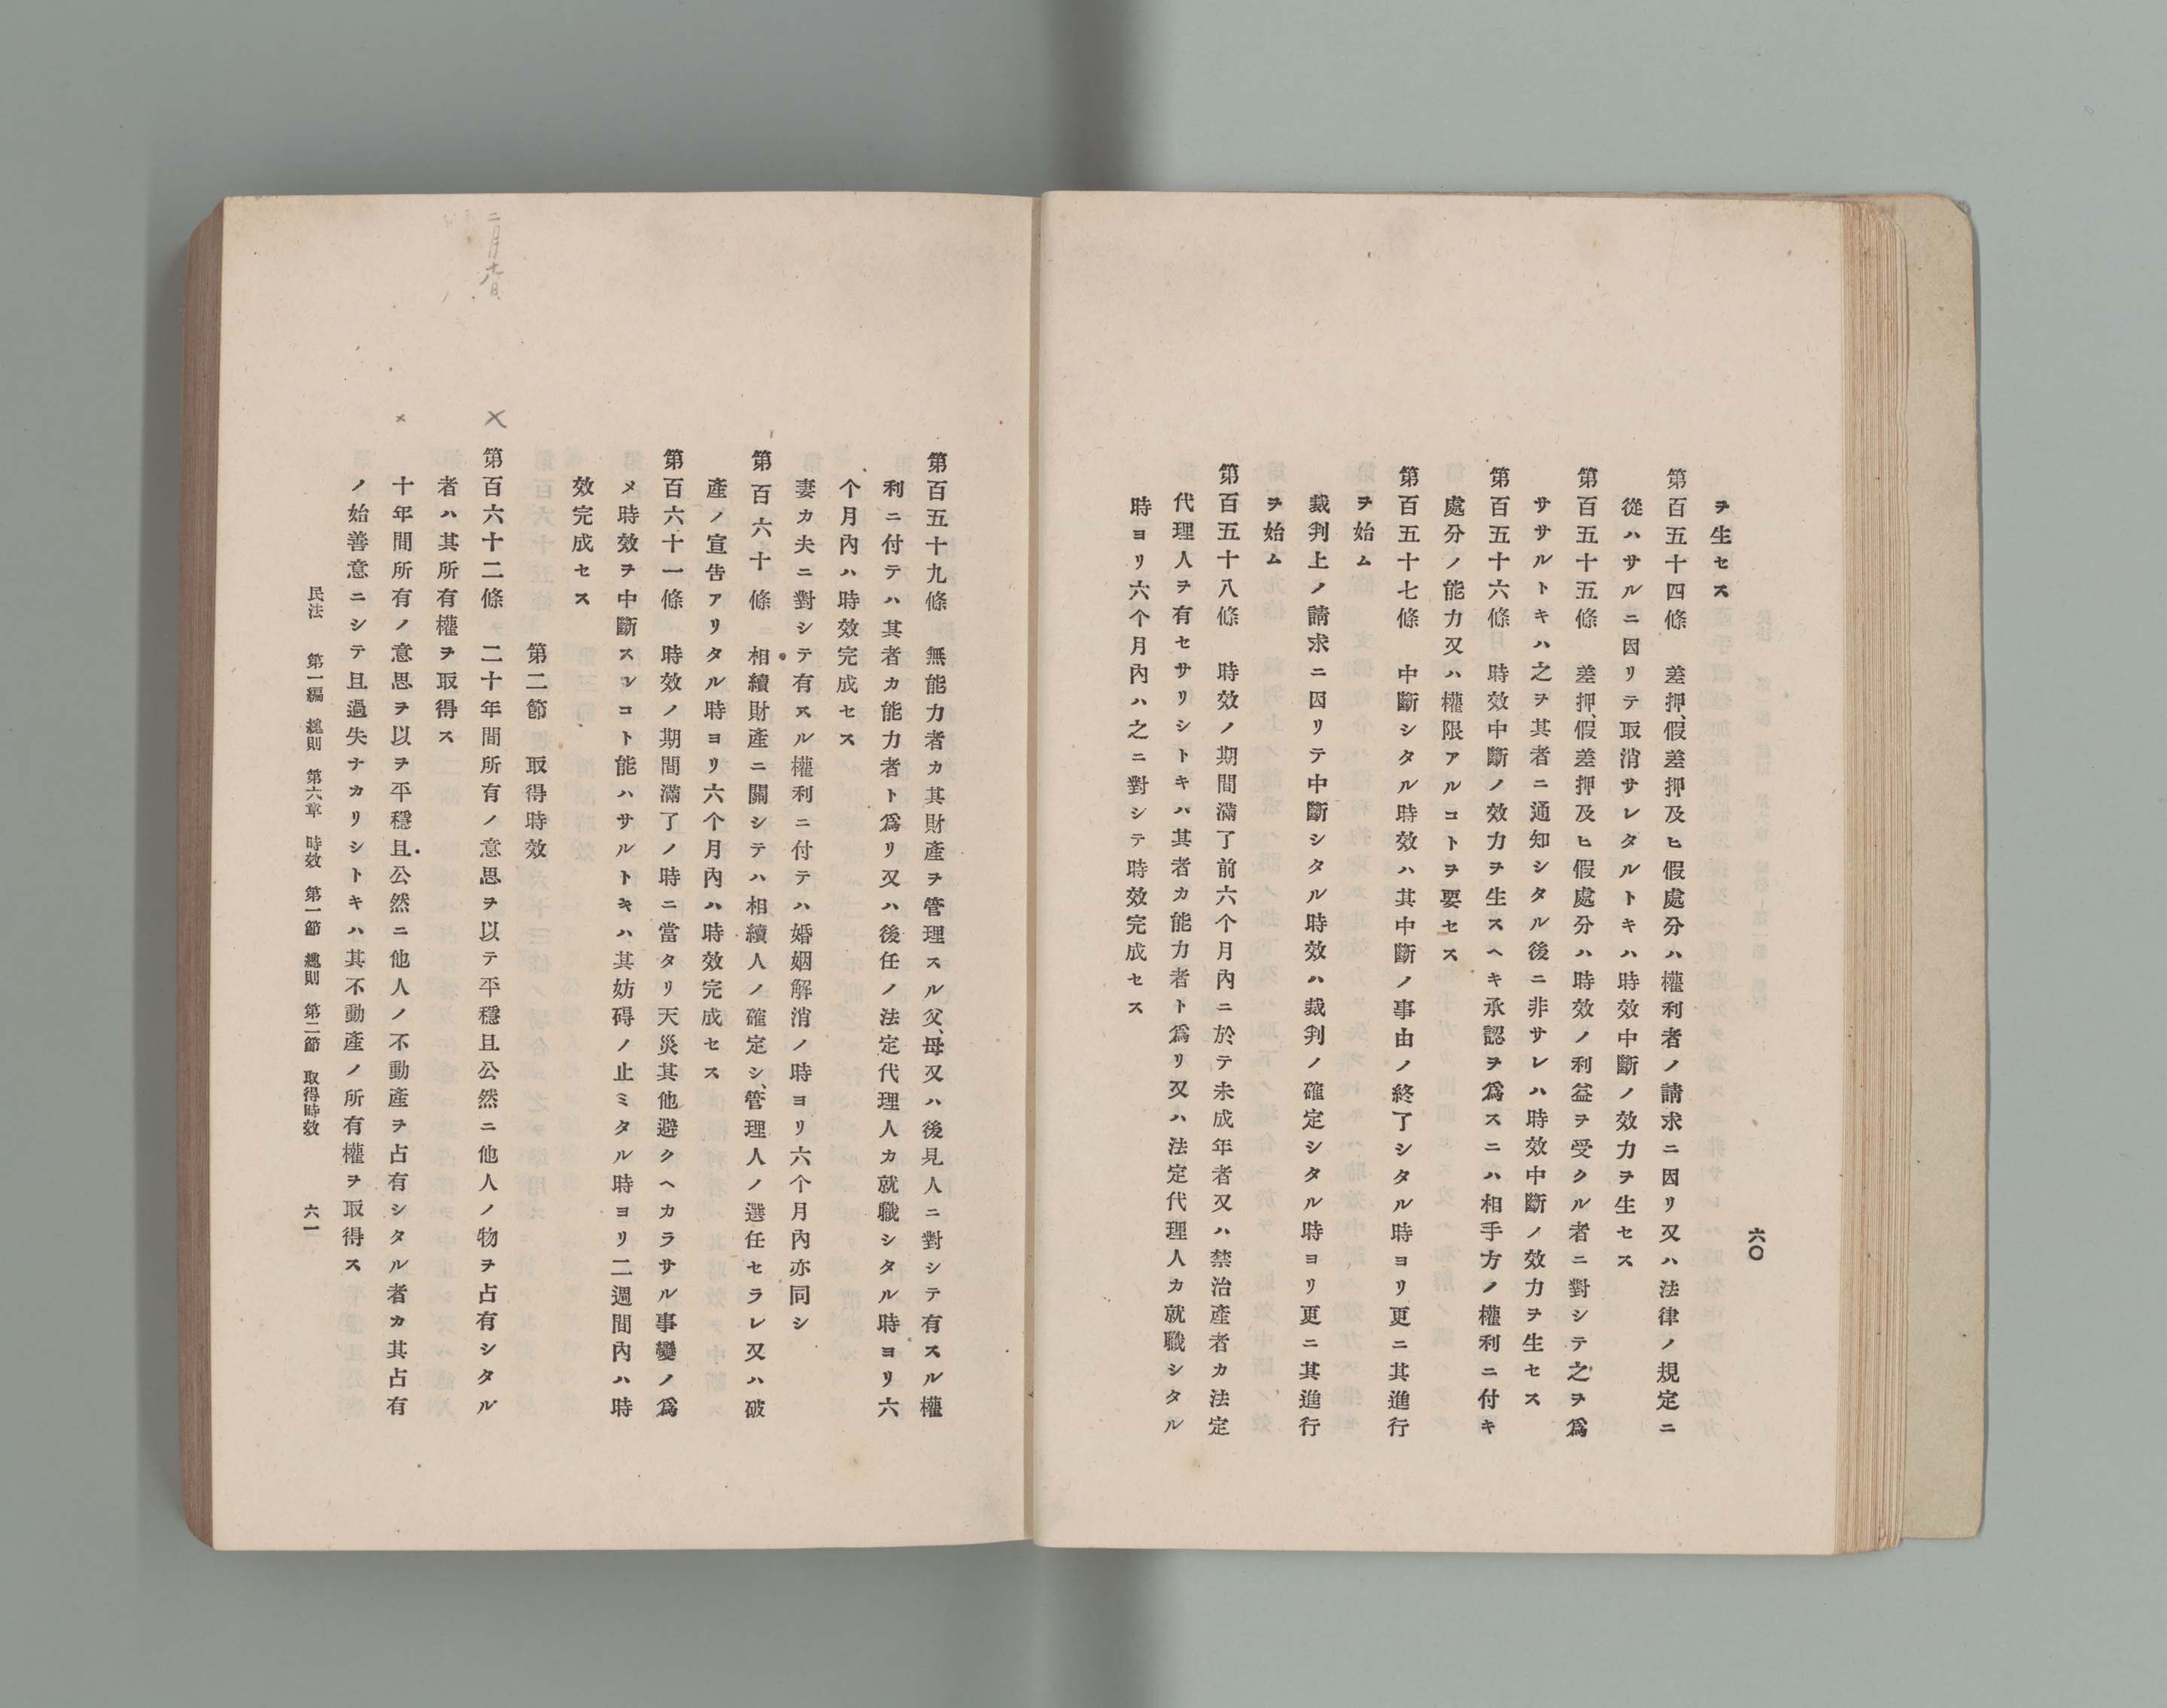 六〇
ヲ生セス
第百五十四條　差押、假差押及ヒ假處分ハ權利者ノ請求ニ因リ又ハ法律ノ規定ニ
從ハサルニ因リテ取消サレタルトキハ時效中斷ノ效力ヲ生セス
第百五十五條　差押、假差押及ヒ假處分ハ時效ノ利益ヲ受クル者ニ對シテ之ヲ爲
ササルトキハ之ヲ其者ニ通知シタル後ニ非サレハ時效中斷ノ效力ヲ生セス
第百五十六條　時效中斷ノ效力ヲ生スヘキ承認ヲ爲スニハ相手方ノ權利ニ付キ
處分ノ能力又ハ權限アルコトヲ要セス
第百五十七條　中斷シタル時效ハ其中斷ノ事由ノ終了シタル時ヨリ更ニ其進行
ヲ始ム
裁判上ノ請求ニ因リテ中斷シタル時效ハ裁判ノ確定シタル時ヨリ更ニ其進行
ヲ始ム
第百五十八條　時效ノ期間滿了前六个月內ニ於テ未成年者又ハ禁治產者カ法定
代理人ヲ有セサリシトキハ其者カ能力者ト爲リ又ハ法定代理人カ就職シタル
時ヨリ六个月內ハ之ニ對シテ時效完成セス
第百五十九條　無能力者カ其財產ヲ管理スル父、母又ハ後見人ニ對シテ有スル權
利ニ付テハ其者カ能力者ト爲リ又ハ後任ノ法定代理人カ就職シタル時ヨリ六
个月內ハ時效完成セス
妻カ夫ニ對シテ有スル權利ニ付テハ婚姻解消ノ時ヨリ六个月內亦同シ
第百六十條　相續財產ニ關シテハ相續人ノ確定シ、管理人ノ選任セラレ又ハ破
產ノ宣告アリタル時ヨリ六个月內ハ時效完成セス
第百六十一條　時效ノ期間滿了ノ時ニ當タリ天災其他避クヘカラサル事變ノ爲
メ時效ヲ中斷スンコト能ハサルトキハ其妨碍ノ止ミタル時ヨリ二週間內ハ時
效完成セス
第二節　取得時效
二月十八日
第百六十二條　二十年間所有ノ意思ヲ以テ平穩且公然ニ他人ノ物ヲ占有シタル
者ハ其所有權ヲ取得ス
十年間所有ノ意思ヲ以ヲ平穩且公然ニ他人ノ不動產ヲ占有シタル者カ其占有
ノ始善意ニシテ且過失ナカリシトキハ其不動產ノ所有權ヲ取得ス
民法　第一編　總則　第六章　時效　第一節　總則　第二節　取得時效　六一